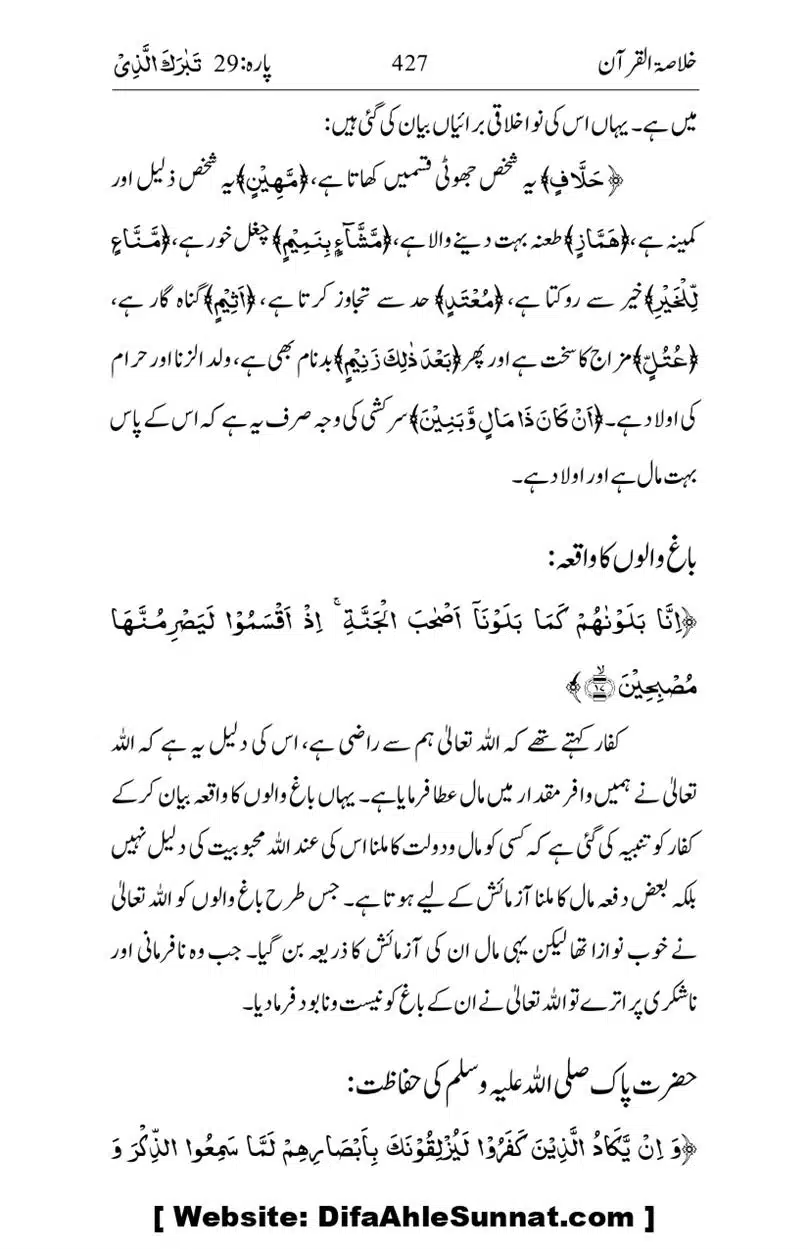 خلاصۃ القرآن 427 پارہ:29 تَبٰرَكَ الَّذِیْ
میں ہے۔ یہاں اس کی نو اخلاقی برائیاں بیان کی گئی ہیں:
﴿حَلَّافٍ﴾ یہ شخص جھوٹی قسمیں کھاتا ہے، ﴿مَّهِیْنٍ﴾ یہ شخص ذلیل اور
کمینہ ہے، ﴿هَمَّازٍ﴾ طعنہ بہت دینے والا ہے، ﴿مَّشَّآءٍۭ بِنَمِیْمٍ﴾ چغل خور ہے، ﴿مَّنَّاعٍ
لِّلْخَیْرِ﴾ خیر سے روکتا ہے، ﴿مُعْتَدٍ﴾ حد سے تجاوز کرتا ہے، ﴿اَثِیْمٍ﴾ گناہ گار ہے،
﴿عُتُلٍّ﴾ مزاج کا سخت ہے اور پھر ﴿بَعْدَ ذٰلِكَ زَنِیْمٍ﴾ بدنام بھی ہے، ولد الزنا اور حرام
کی اولاد ہے۔ ﴿اَنْ كَانَ ذَا مَالٍ وَّ بَنِیْنَ﴾ سرکشی کی وجہ صرف یہ ہے کہ اس کے پاس
بہت مال ہے اور اولاد ہے۔
باغ والوں کا واقعہ:
﴿اِنَّا بَلَوْنٰهُمْ كَمَا بَلَوْنَاۤ اَصْحٰبَ الْجَنَّةِ ۚ اِذْ اَقْسَمُوْا لَیَصْرِمُنَّهَا
مُصْبِحِیْنَ ﴿ۙ۱۷﴾﴾
کفار کہتے تھے کہ اللہ تعالیٰ ہم سے راضی ہے، اس کی دلیل یہ ہے کہ اللہ
تعالیٰ نے ہمیں وافر مقدار میں مال عطا فرمایا ہے۔ یہاں باغ والوں کا واقعہ بیان کر کے
کفار کو تنبیہ کی گئی ہے کہ کسی کو مال و دولت کا ملنا اس کی عند اللہ محبوبیت کی دلیل نہیں
بلکہ بعض دفعہ مال کا ملنا آزمائش کے لیے ہوتا ہے۔ جس طرح باغ والوں کو اللہ تعالیٰ
نے خوب نوازا تھا لیکن یہی مال ان کی آزمائش کا ذریعہ بن گیا۔ جب وہ نافرمانی اور
ناشکری پر اترے تو اللہ تعالیٰ نے ان کے باغ کو نیست و نابود فرما دیا۔
حضرت پاک صلی اللہ علیہ وسلم کی حفاظت:
﴿وَ اِنْ یَّكَادُ الَّذِیْنَ كَفَرُوْا لَیُزْلِقُوْنَكَ بِاَبْصَارِهِمْ لَمَّا سَمِعُوا الذِّكْرَ وَ
[ Website: DifaAhleSunnat.com ]